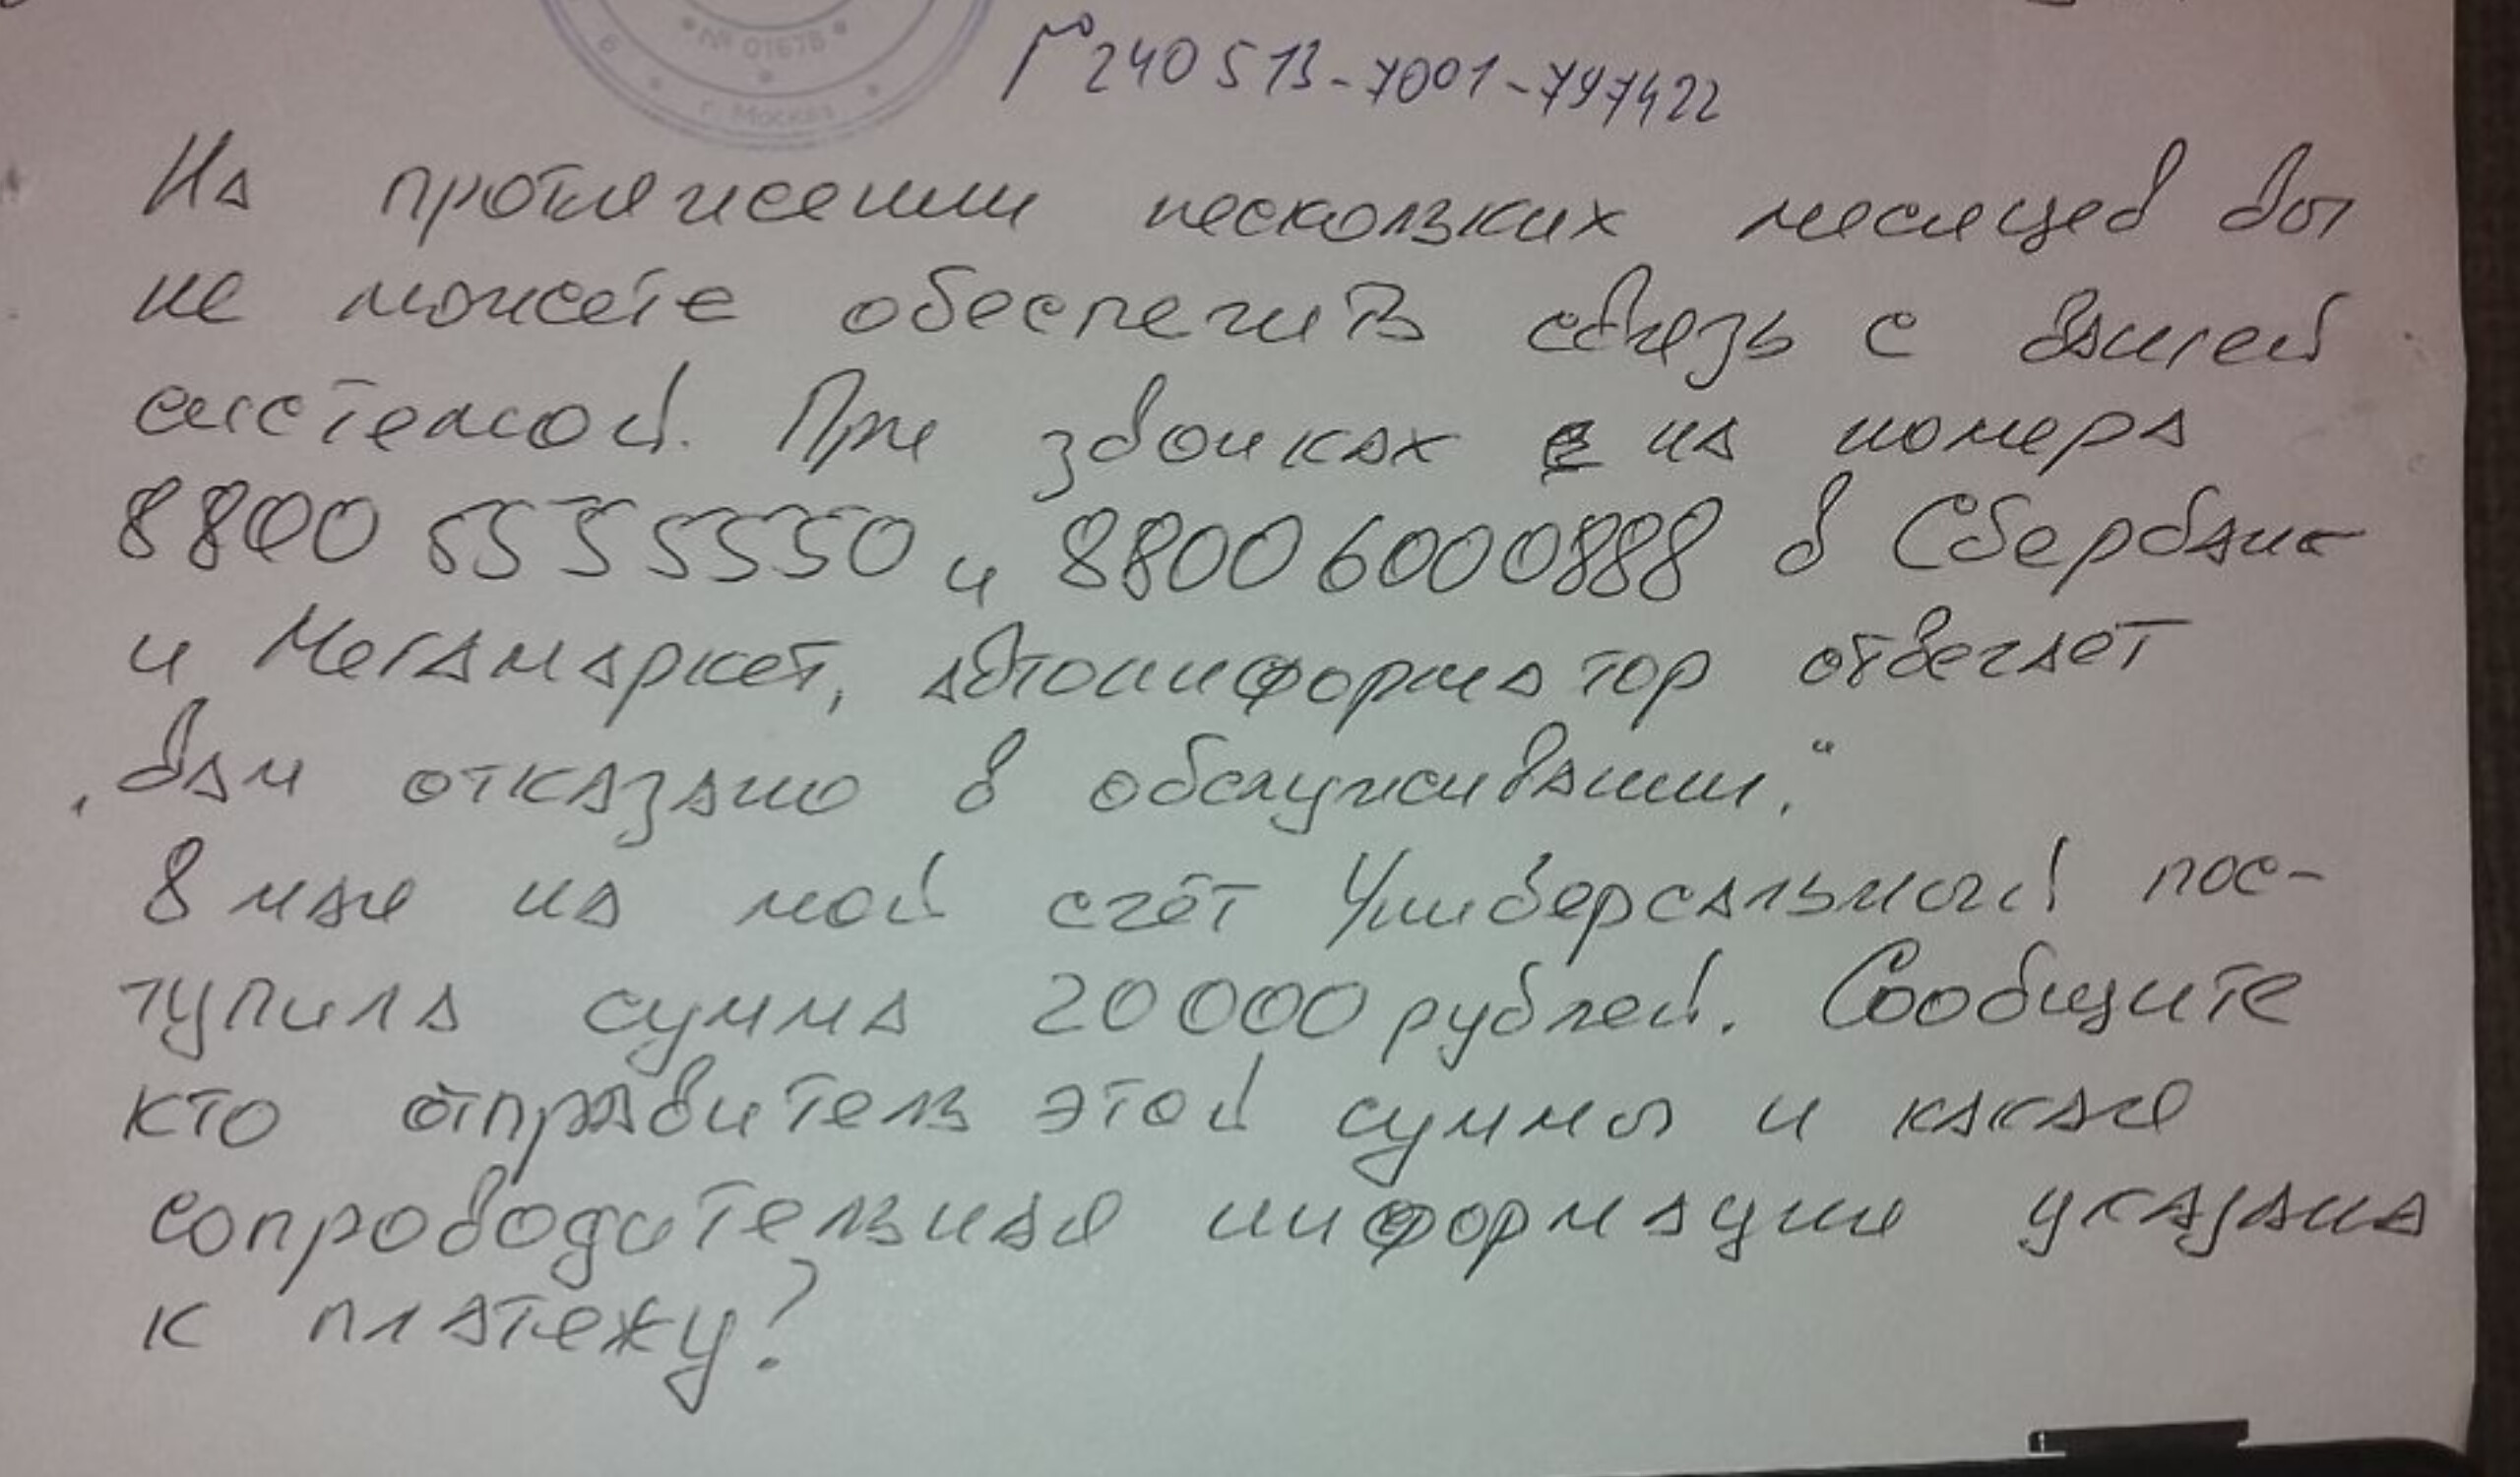 № 01678
г. Москва
№ 240513-7001-797422
На протяжении нескольких месяцев вы
не можете обеспечить связь с вашей
системой. При звонках на номера
8800 5555550 и 8800 6000888 в Сбербанк
и Мегамаркет, автоинформатор отвечает
„Вам отказано в обслуживании.“
8 мая на мой счёт Универсальный пос-
тупила сумма 20 000 рублей. Сообщите
кто отправитель этой суммы и какая
сопроводительная информация указана
к платежу?